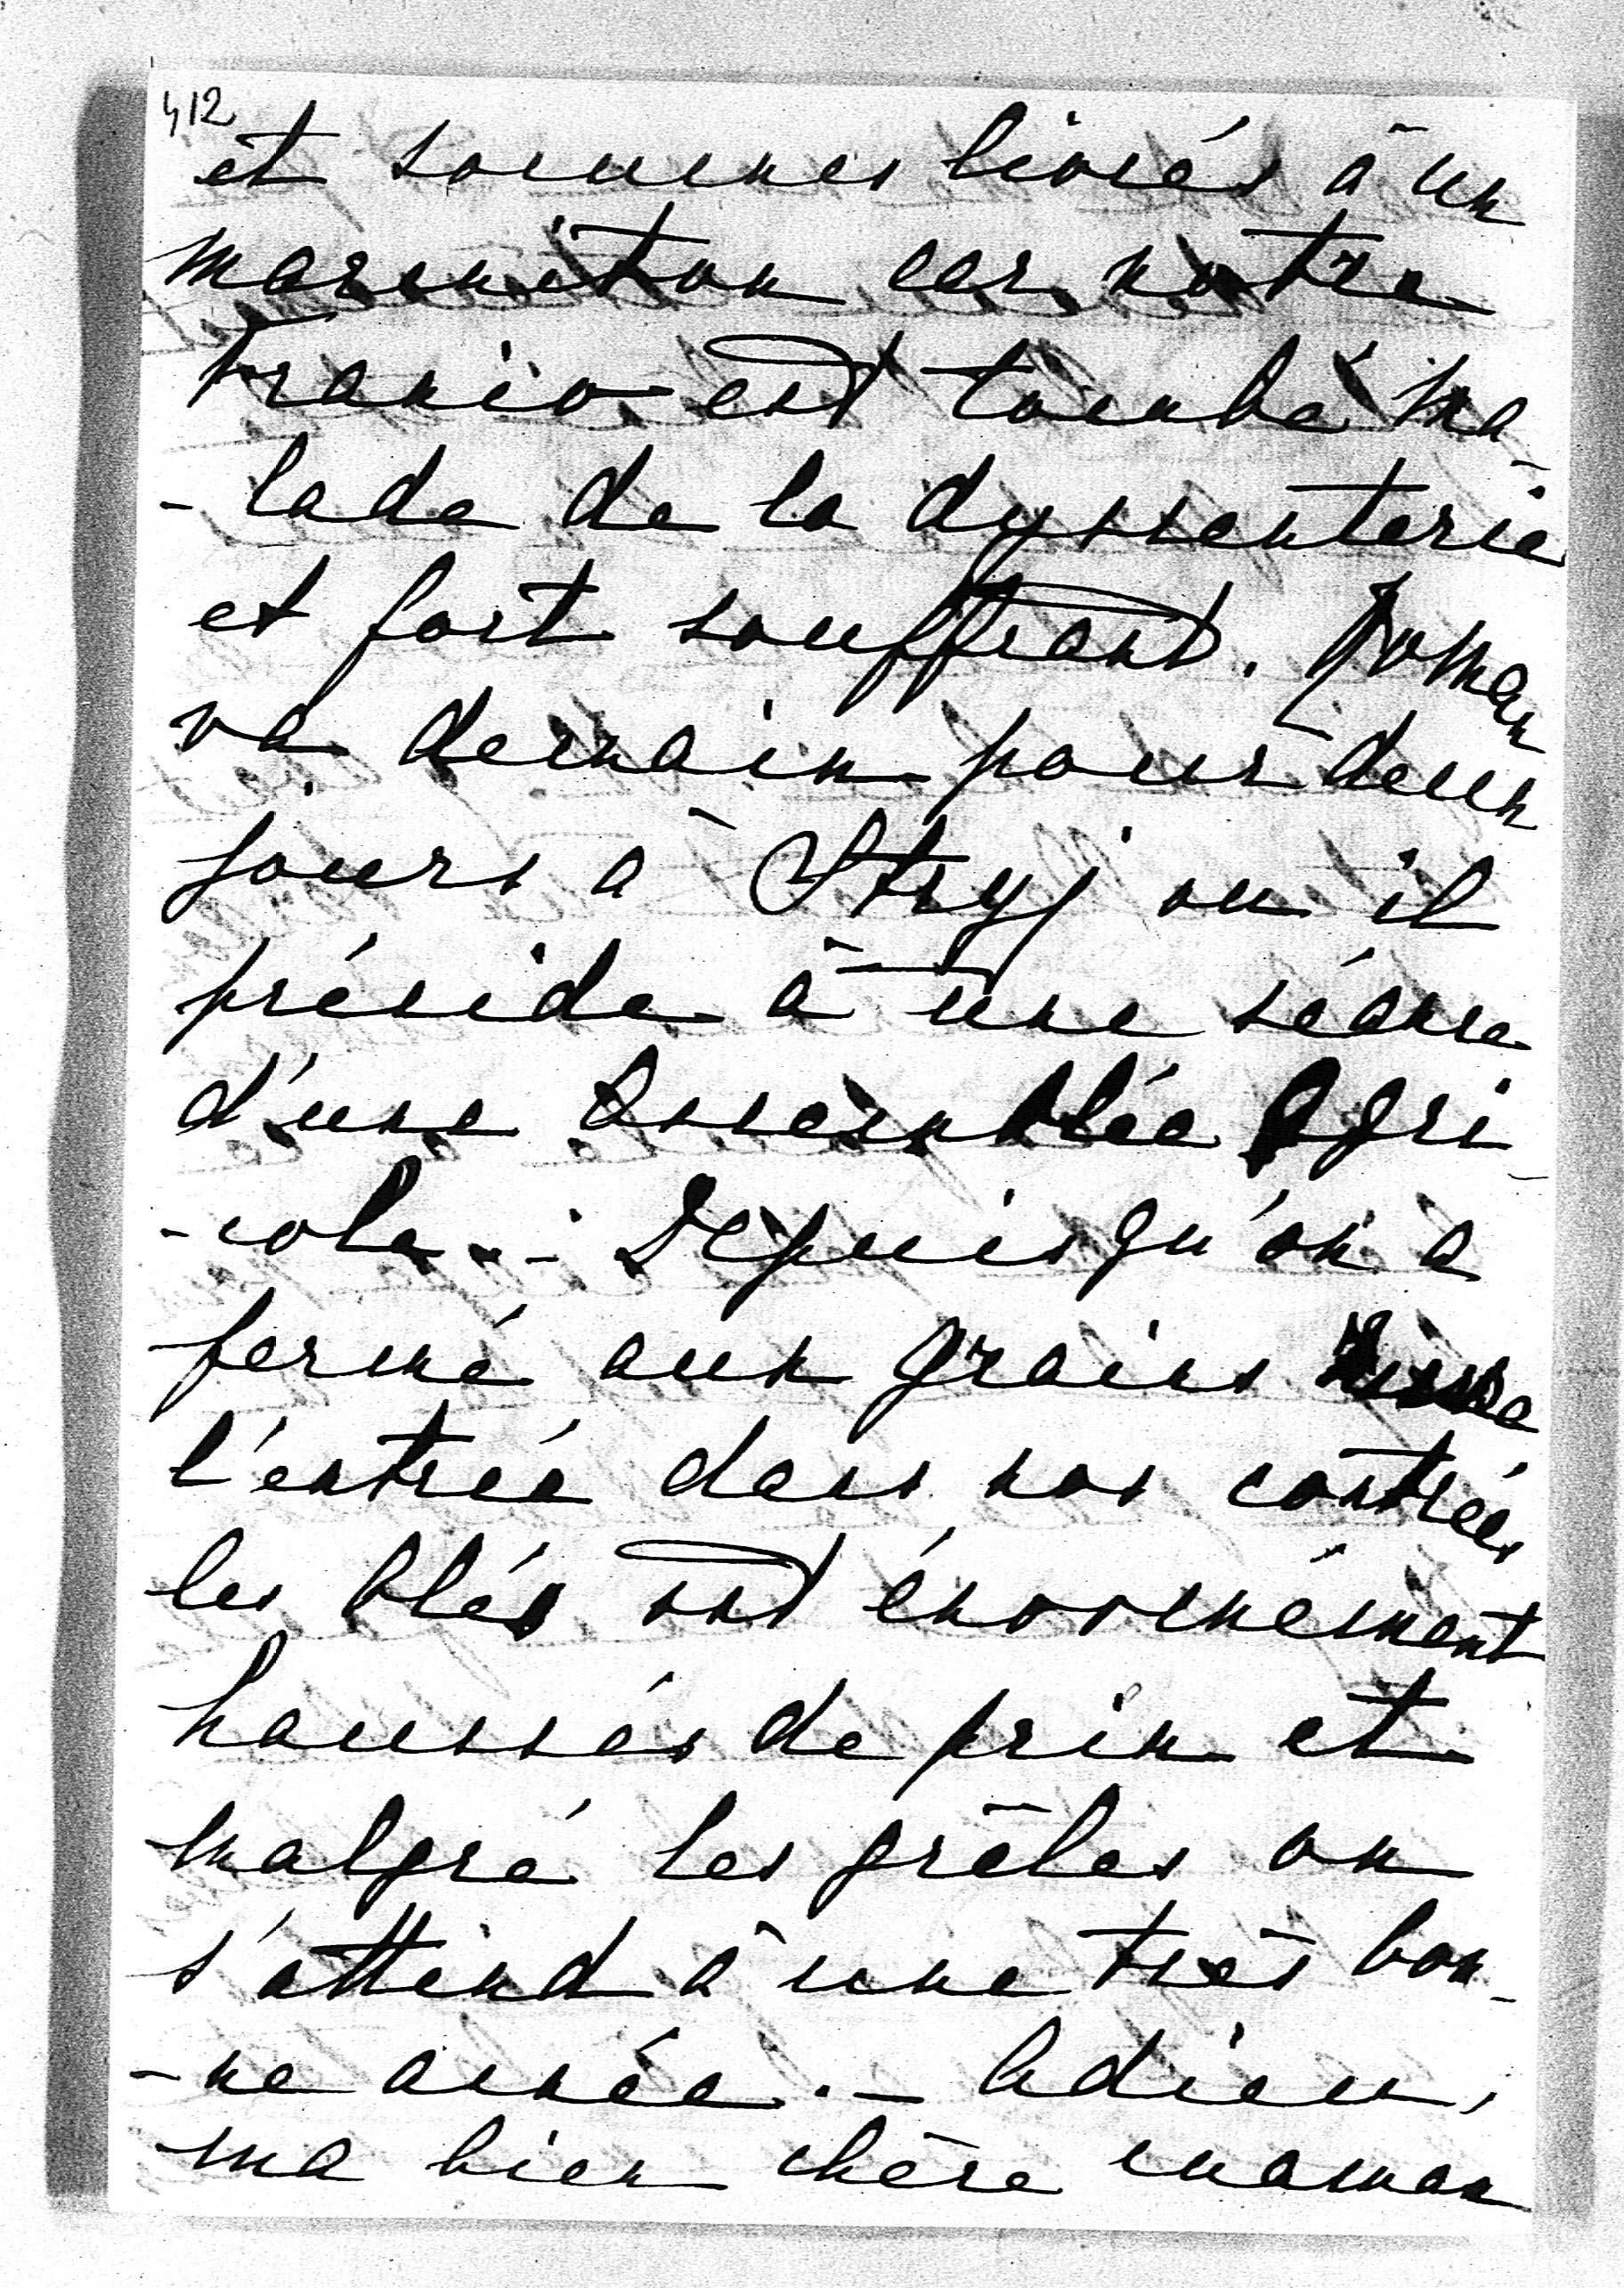 412
et sommes livrés à un
marmiton car notre
Franio est tombé ma-
-lade de la dyssenterie
et fort souffrant. Roman
va demain pour deux
jours à Stryj ou il
préside à une séance
d'une Assemblée Agri-
-cole. - Depuis qu'on a
fermé aux grains
l'entrée dans nos contrées
les blés ont énormément
haussés de prix et
malgré les grêles on
s'attend à une très bon-
-ne année. - Adieu,
ma bien chère maman